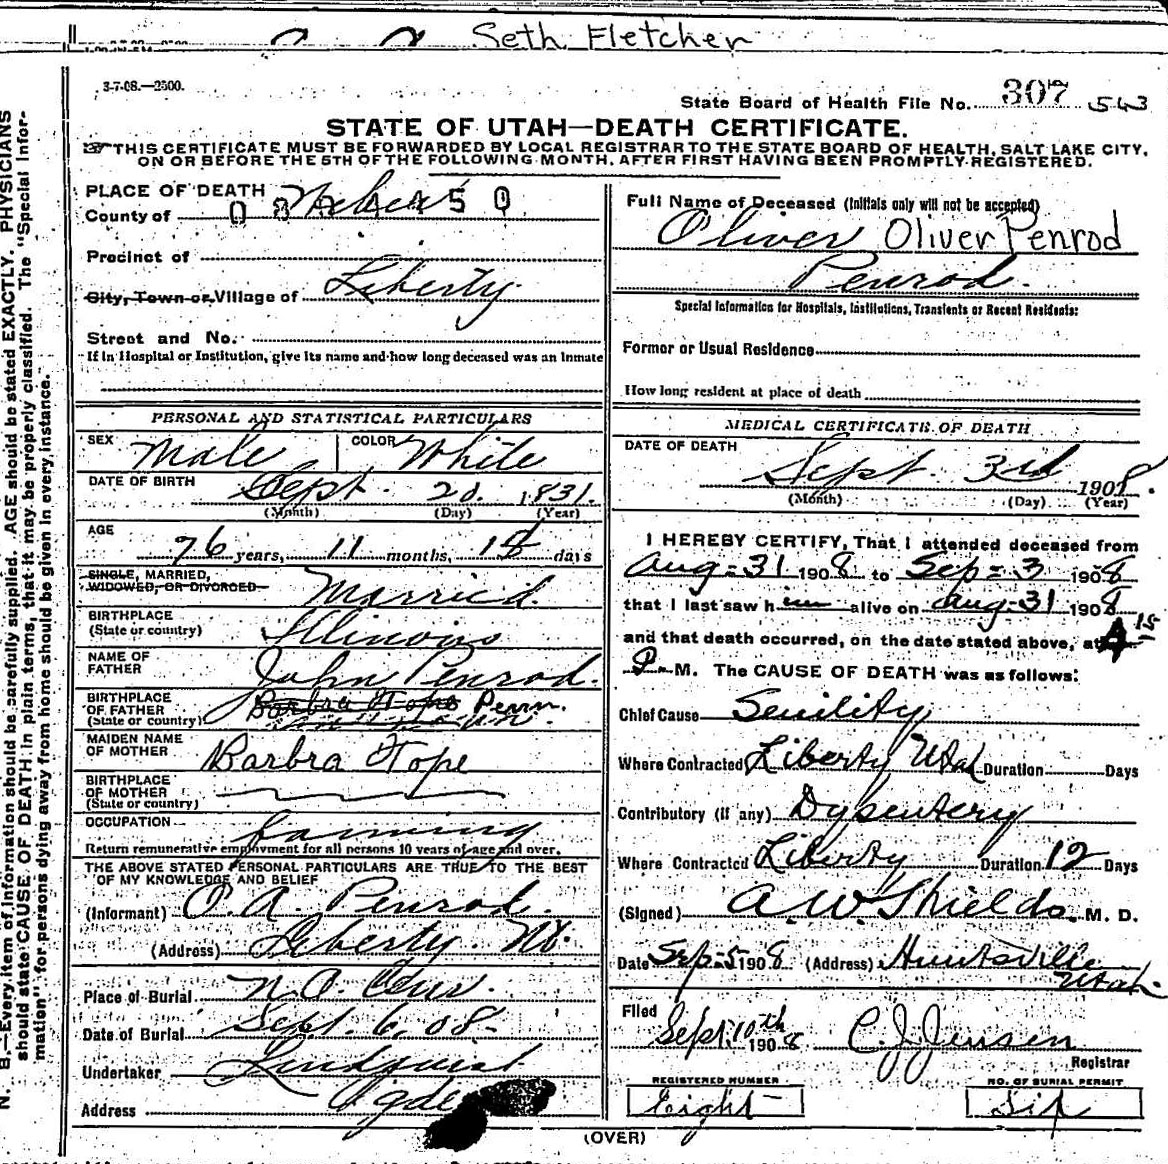 Seth Fletcher
3-7-08.—2500.
State Board of Health File No. 307 543
STATE OF UTAH—DEATH CERTIFICATE.
THIS CERTIFICATE MUST BE FORWARDED BY LOCAL REGISTRAR TO THE STATE BOARD OF HEALTH, SALT LAKE CITY,
ON OR BEFORE THE 5TH OF THE FOLLOWING MONTH, AFTER FIRST HAVING BEEN PROMPTLY REGISTERED.
PLACE OF DEATH
County of Weber
Precinct of
City, Town or Village of Liberty
Street and No.
If in Hospital or Institution, give its name and how long deceased was an inmate
PERSONAL AND STATISTICAL PARTICULARS
SEX Male COLOR White
DATE OF BIRTH Sept. 20. 1831.
(Month) (Day) (Year)
AGE 76 years, 11 months, 14 days
SINGLE, MARRIED,
WIDOWED, OR DIVORCED Married.
BIRTHPLACE
(State or country) Illinois
NAME OF
FATHER John Penrod.
BIRTHPLACE
OF FATHER Barbra Hope Penn.
(State or country)
MAIDEN NAME
OF MOTHER Barbra Hope
BIRTHPLACE
OF MOTHER
(State or country)
OCCUPATION farming
Return remunerative employment for all persons 10 years of age and over.
THE ABOVE STATED PERSONAL PARTICULARS ARE TRUE TO THE BEST
OF MY KNOWLEDGE AND BELIEF
(Informant) O. A. Penrod.
(Address) Liberty. Ut.
Place of Burial
Date of Burial Sept. 6. 08-
Undertaker Lindquist
Address Ogden
Full Name of Deceased (Initials only will not be accepted)
Oliver Oliver Penrod
Penrod.
Special Information for Hospitals, Institutions, Transients or Recent Residents:
Former or Usual Residence
How long resident at place of death
MEDICAL CERTIFICATE OF DEATH
DATE OF DEATH
Sept. 3rd 1908.
(Month) (Day) (Year)
I HEREBY CERTIFY, That I attended deceased from
Aug=31 1908 to Sep=3 1908
that I last saw him alive on Aug=31 1908
and that death occurred, on the date stated above, at 4 15
P. M. The CAUSE OF DEATH was as follows:
Chief Cause Senility
Where Contracted Liberty Utah Duration Days
Contributory (if any) Dysentery
Where Contracted Liberty Duration 12 Days
(Signed) A. W. Shields. M. D.
Date Sep=5 1908 (Address) Huntsville
Utah.
Filed
Sept. 10th 1908 C. J. Jensen
Registrar
REGISTERED NUMBER NO. OF BURIAL PERMIT
Eight Six
(OVER)
N. B.—Every item of information should be carefully supplied. AGE should be stated EXACTLY. PHYSICIANS
should state CAUSE OF DEATH in plain terms, that it may be properly classified. The "Special Infor-
mation" for persons dying away from home should be given in every instance.